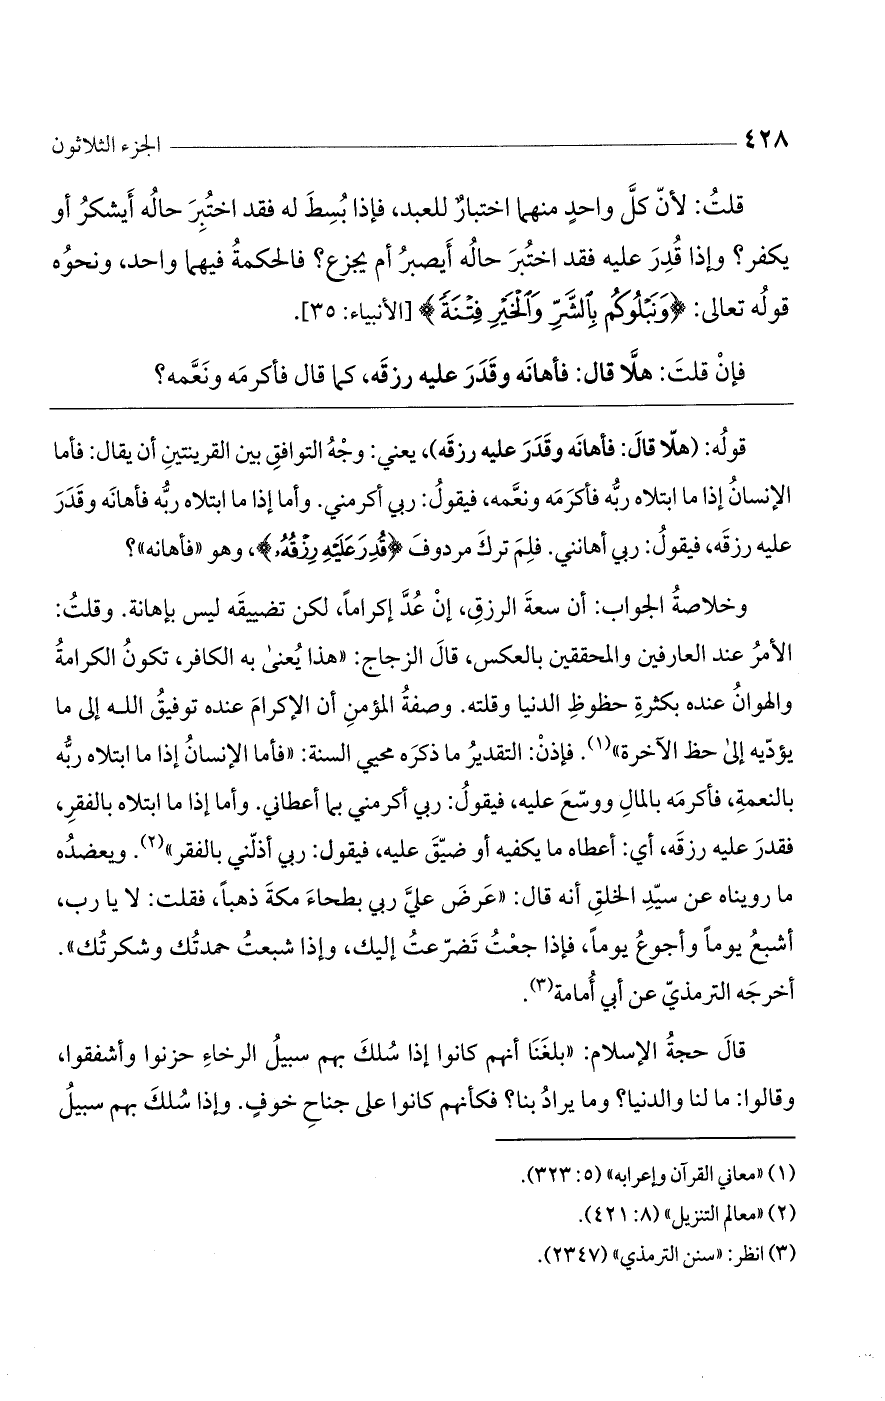 ٤٢٨ الجزء الثلاثون
قلتُ: لأنّ كلَّ واحدٍ منهما اختبارٌ للعبد، فإذا بُسِطَ له فقد اختُبِرَ حالُه أَيشكرُ أو
يكفر؟ وإذا قُدِرَ عليه فقد اختُبرَ حالُه أَيصبرُ أم يجزع؟ فالحكمةُ فيهما واحد، ونحوُه
قولُه تعالى: ﴿وَنَبْلُوكُم بِٱلشَّرِّ وَٱلْخَيْرِ فِتْنَةً﴾ [الأنبياء: ٣٥].
فإنْ قلتَ: هلَّا قال: فأهانَه وقَدَرَ عليه رزقَه، كما قال فأكرمَه ونَعَّمه؟
قولُه: (هلّا قالَ: فأهانَه وقَدَرَ عليه رزقَه)، يعني: وجْهُ التوافقِ بين القرينتينِ أن يقال: فأما
الإنسانُ إذا ما ابتلاه ربُّه فأكرَمَه ونعَّمه، فيقولُ: ربي أكرمني. وأما إذا ما ابتلاه ربُّه فأهانَه وقَدَرَ
عليه رزقَه، فيقولُ: ربي أهانني. فلِمَ تركَ مردوفَ ﴿قُدِرَ عَلَيْهِ رِزْقُهُ﴾، وهو «فأهانه»؟
وخلاصةُ الجواب: أن سعةَ الرزقِ، إنْ عُدَّ إكراماً، لكن تضييقَه ليس بإهانة. وقلتُ:
الأمرُ عند العارفين والمحققين بالعكس، قالَ الزجاج: «هذا يُعنىٰ به الكافر، تكونُ الكرامةُ
والهوانُ عنده بكثرةِ حظوظِ الدنيا وقلته. وصفةُ المؤمنِ أن الإكرامَ عنده توفيقُ اللـه إلى ما
يؤدّيه إلىٰ حظ الآخرة»(١). فإذنْ: التقديرُ ما ذكرَه محيي السنة: «فأما الإنسانُ إذا ما ابتلاه ربُّه
بالنعمةِ، فأكرمَه بالمالِ ووسّعَ عليه، فيقولُ: ربي أكرمني بما أعطاني. وأما إذا ما ابتلاه بالفقرِ،
فقدرَ عليه رزقَه، أي: أعطاه ما يكفيه أو ضيّقَ عليه، فيقول: ربي أذلّني بالفقر»(٢). ويعضدُه
ما رويناه عن سيّدِ الخلقِ أنه قال: «عَرضَ عليَّ ربي بطحاءَ مكةَ ذهباً، فقلت: لا يا رب،
أشبعُ يوماً وأجوعُ يوماً، فإذا جعْتُ تَضرّعتُ إليك، وإذا شبعتُ حمدتُك وشكرتُك».
أخرجَه الترمذيّ عن أبي أُمامة(٣).
قالَ حجةُ الإسلام: «بلغَنَا أنهم كانوا إذا سُلكَ بهم سبيلُ الرخاءِ حزنوا وأشفقوا،
وقالوا: ما لنا والدنيا؟ وما يرادُ بنا؟ فكأنهم كانوا على جناحِ خوفٍ. وإذا سُلكَ بهم سبيلُ
(١) «معاني القرآن وإعرابه» (٥: ٣٢٣).
(٢) «معالم التنزيل» (٨: ٤٢١).
(٣) انظر: «سنن الترمذي» (٢٣٤٧).